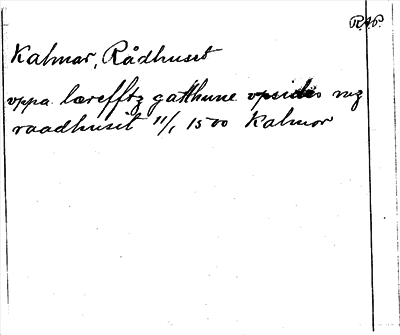 RAP.
Kalmar, Rådhuset
vppa lærefftz gatthune vpsides weg
raadhusit 11/1 1500 Kalmar